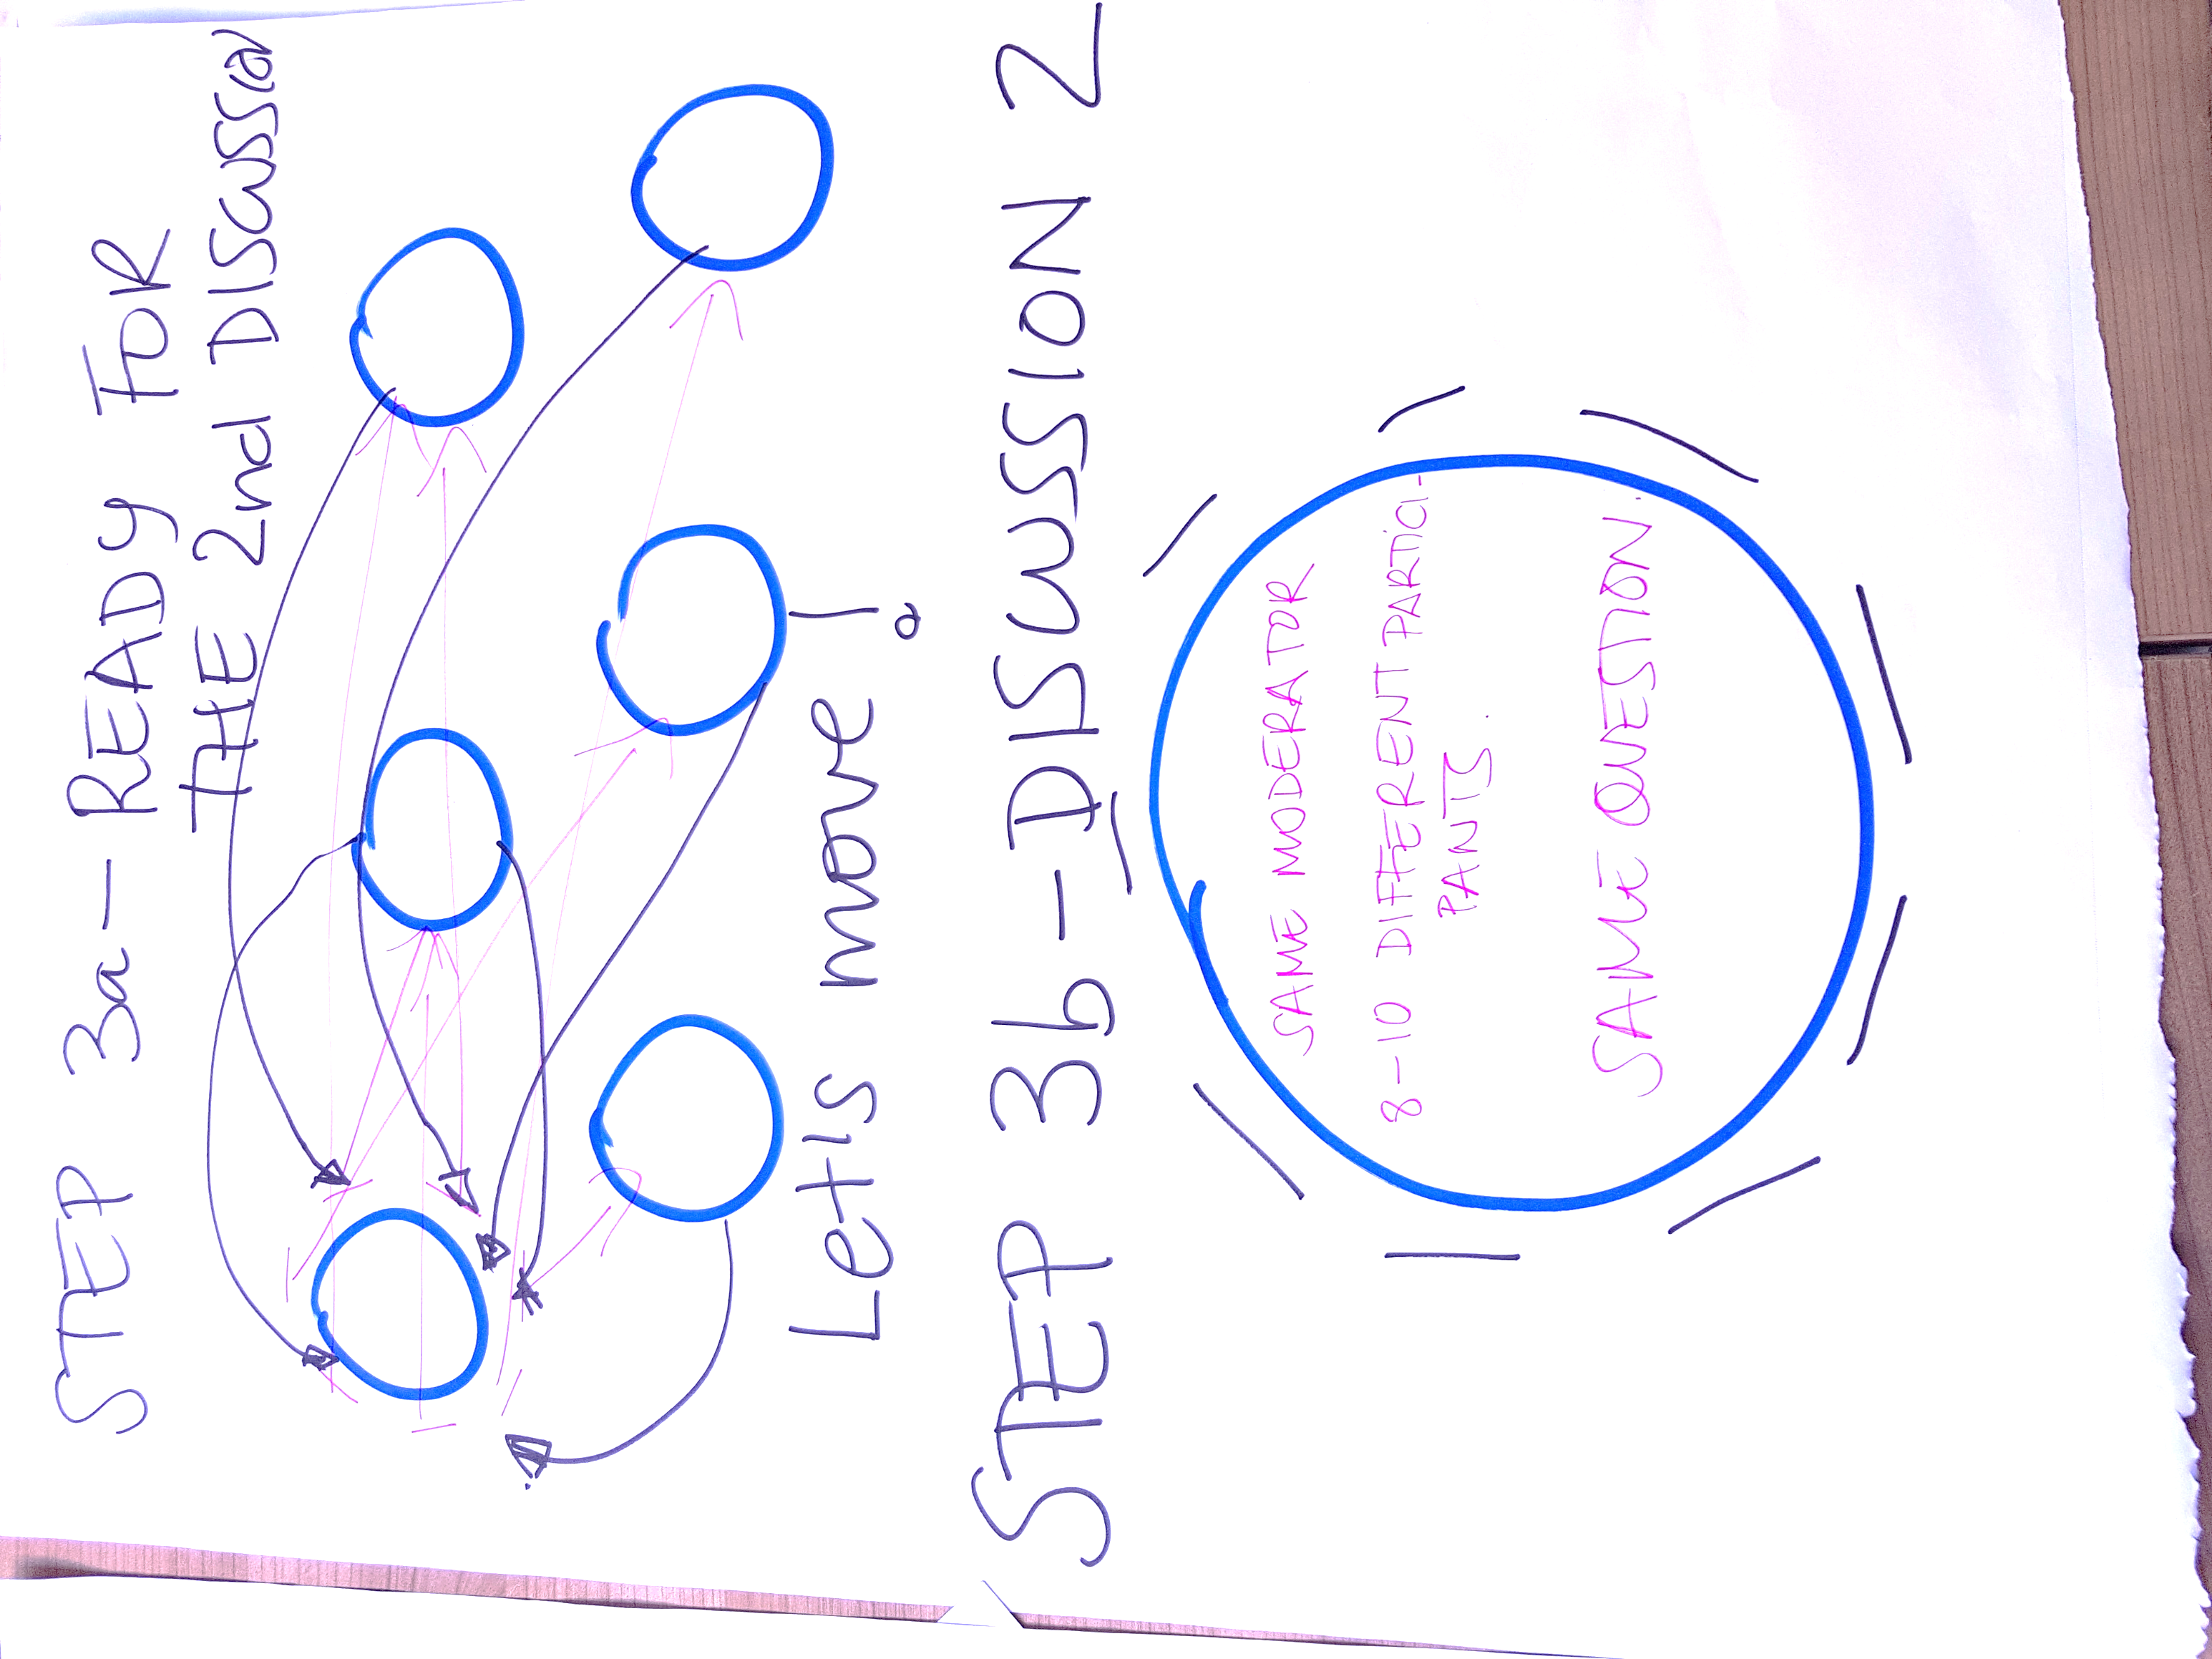 STEP 3a - READY FOR
THE 2nd DISCUSSION
Let's move!
STEP 3b - DISCUSSION 2
SAME MODERATOR
8-10 DIFFERENT PARTICI-
PANTS.
SAME QUESTION.